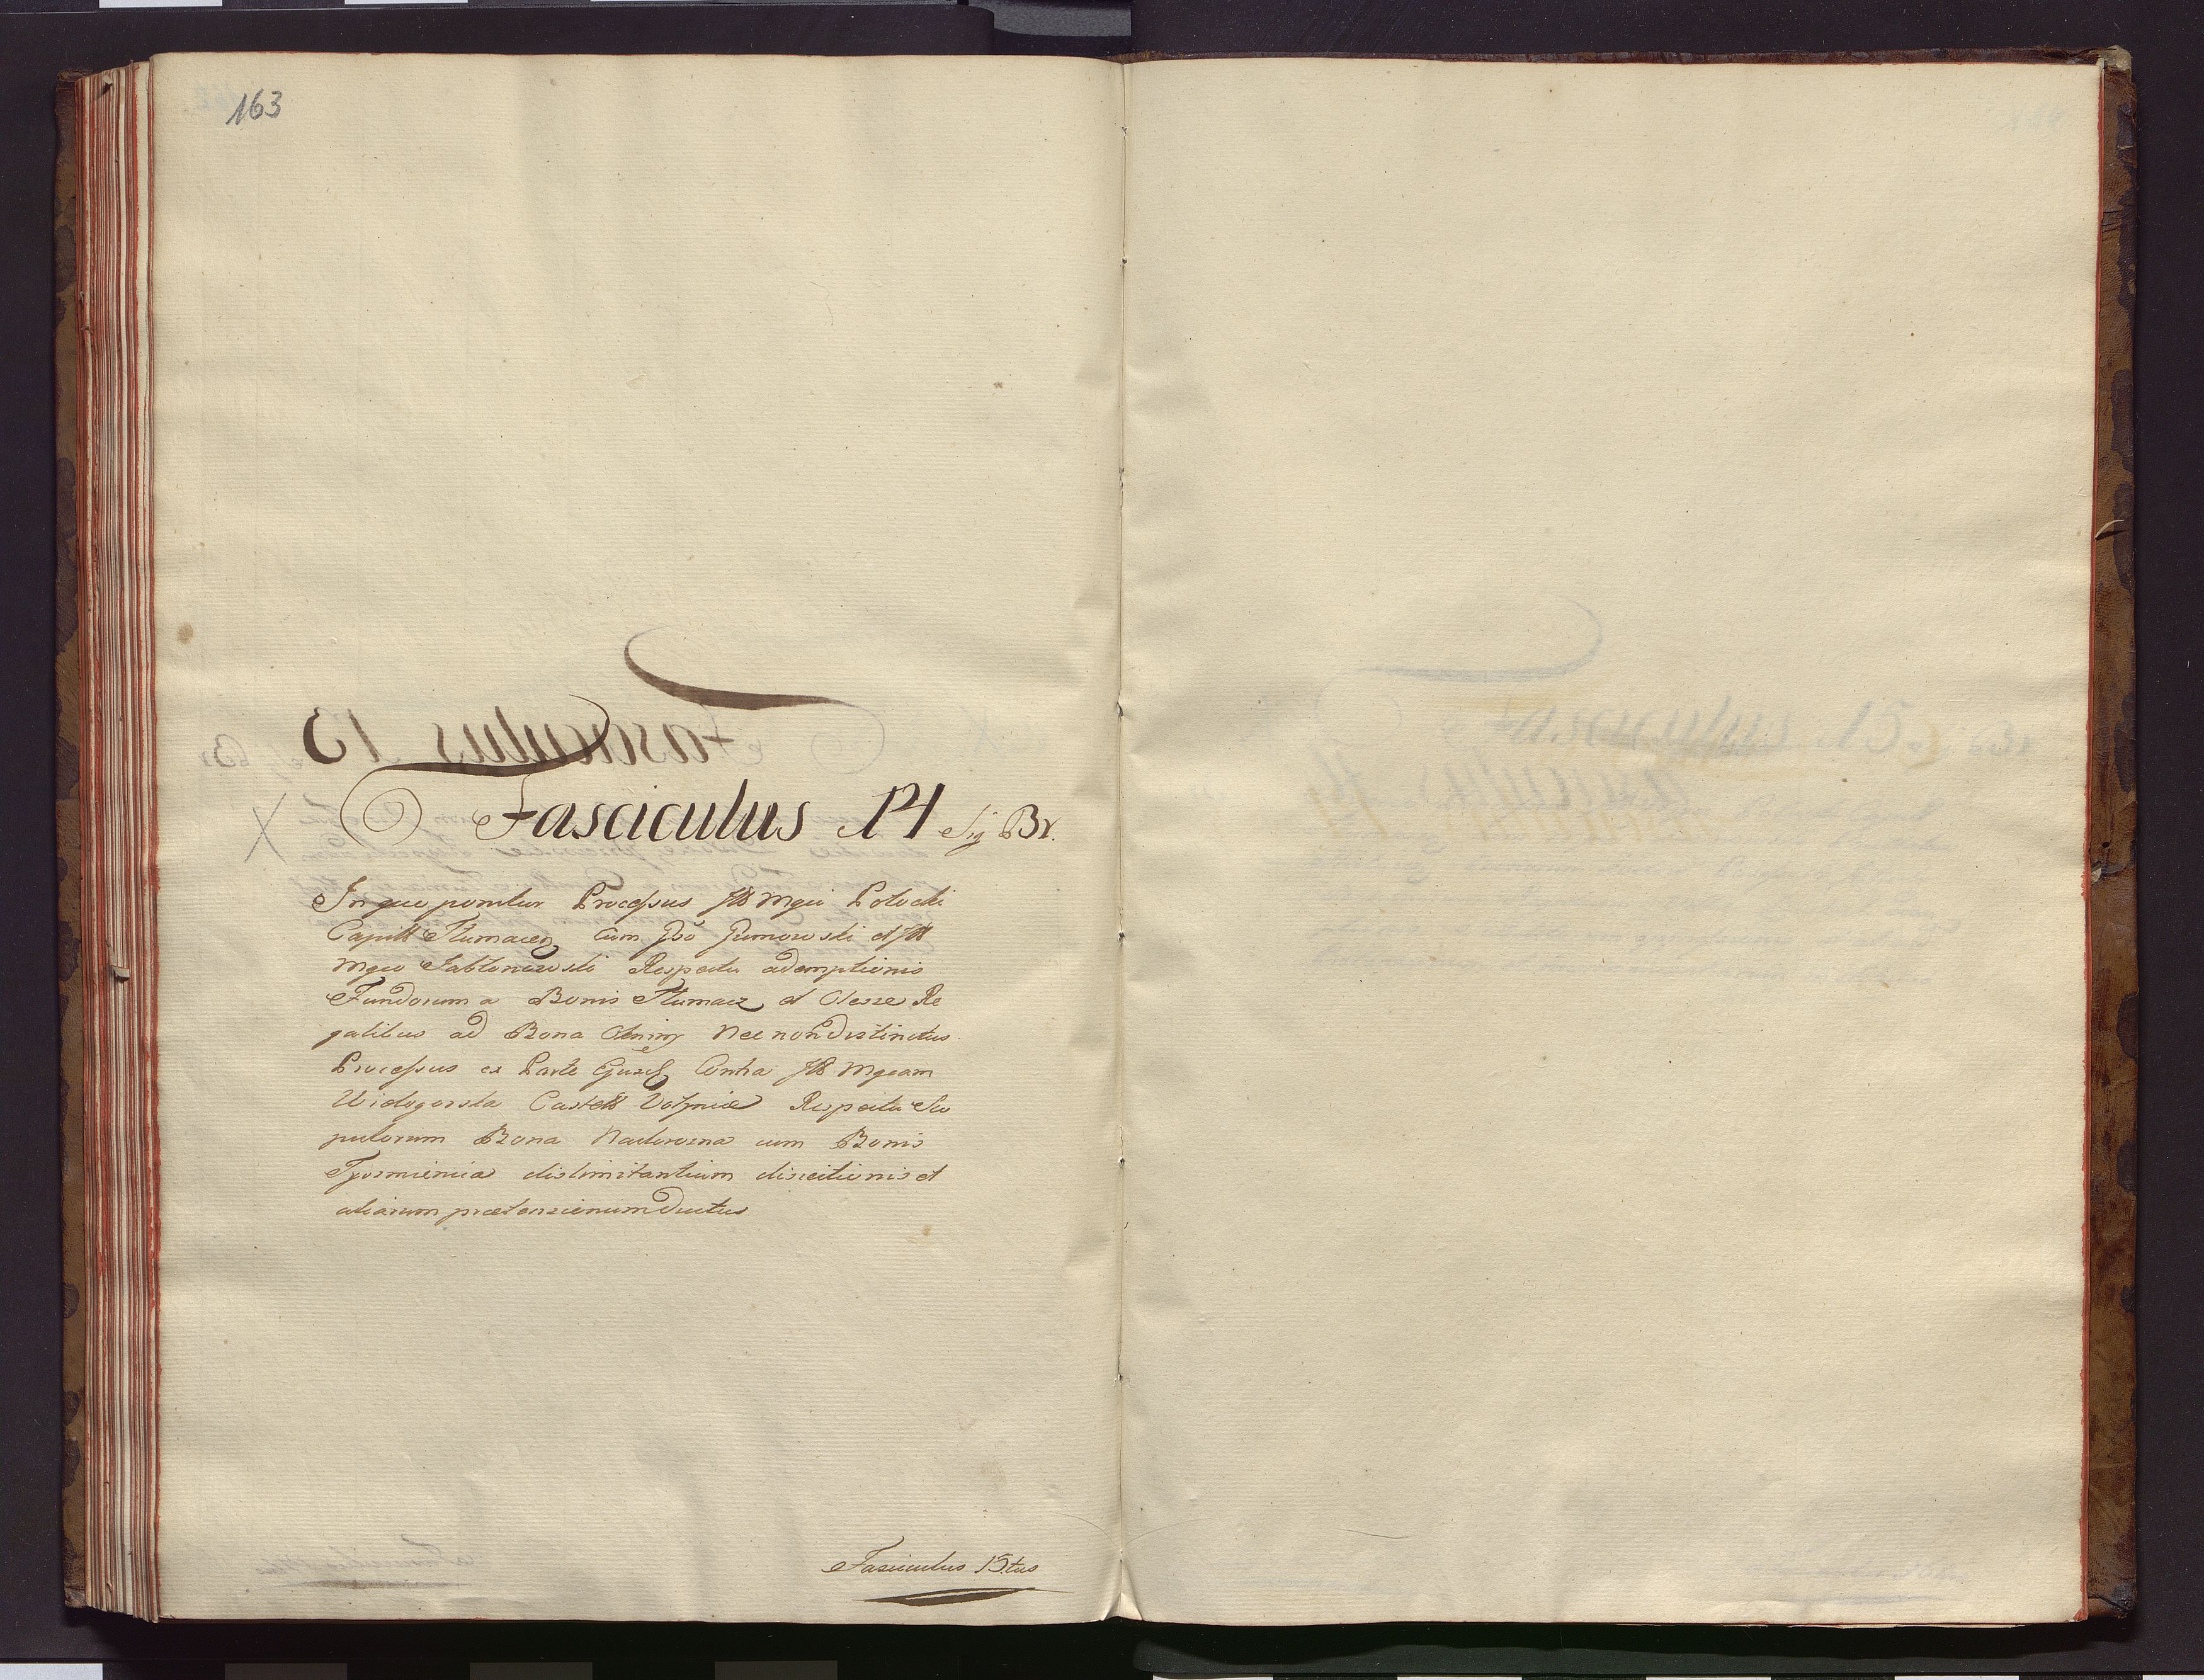 163
Fasciculus 14 Sig Br.
In quo ponitur Processus Ill Mgci Potocki
Capitt Tłumacz cum Gso Gumowski et Ill
Mgco Jabłonowski Respectu ademptionis
Fundorum a Bonis Tłumacz et Olesze Re
galibus ad Bona nec non distinctus
Processus ex Parte Ejusd Contra Ill Mgcam
Widogorska Castell Volyniæ Respectu Sco
pulorum Bona Nadworna cum Bonis
Tyśmienica dislimitantium disjectionis et
aliarum prætensionum ductus
Fasciculus 15.tus